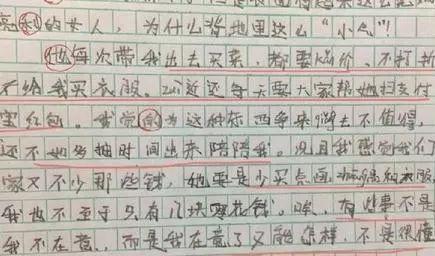 亮利的女人，为什么背地里这么“小气”！
她每次带我出去买菜，都要砍价、不打折
不给我买衣服。最近还每天要大家帮她扫支付
宝红包。我觉的为这种东西争来得去不值得，
还不如多抽时间出来陪陪我。况且我感觉我们
家又不少那些钱，她要是少买点
衣服
我也不至于只有几块零花钱。唉，有些事不是
我不在意，而是我在意了又能怎样，不是很懂